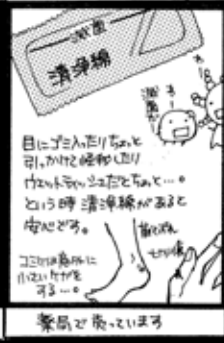 滅菌
清浄綿
滅菌だ
わー
わー
目にゴミ入ったりちょっと
引っかけて怪我したり
ウェットティッシュだとちょっと…。
という時 清浄綿があると
安心です。
靴ずれ
切り傷
コミケは意外に
小さいケガを
する…。
薬局で売っています